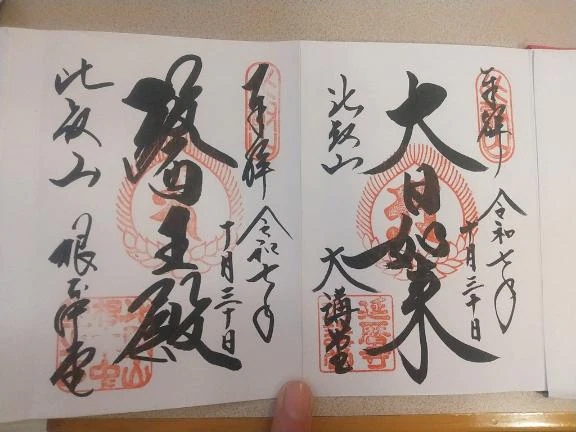 奉拝
令和七年
十月三十日
大日如来
比叡山
大講堂
延暦寺
奉拝
令和七年
十月三十日
醫王殿
比叡山
根本中堂